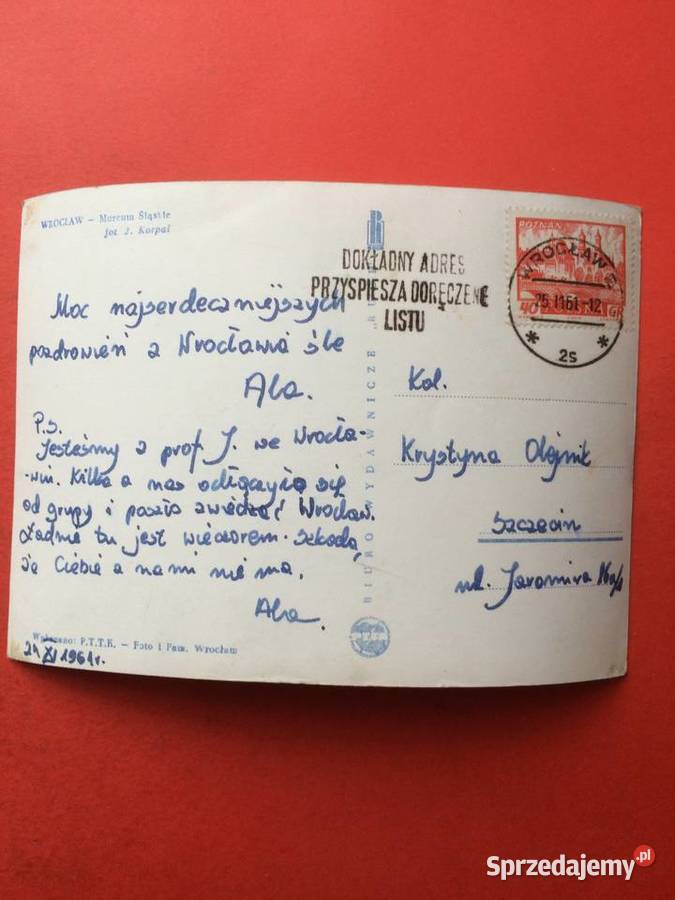 WROCŁAW — Muzeum Śląskie
fot. J. Korpal
DOKŁADNY ADRES
PRZYSPIESZA DORĘCZENIE
LISTU
POZNAŃ
40 GR
WROCŁAW 2
25 11 61-12
* 2s *
Moc najserdeczniejszych
pozdrowień z Wrocławia śle
Ala.
P.s.
Jesteśmy z prof. J. we Wrocła-
-wiu. Kilka z nas odłączyło się
od grupy i poszło zwiedzać Wrocław.
Ładnie tu jest wieczorem. Szkoda,
że Ciebie z nami nie ma.
Ala.
Kol.
Krystyna Olejnik
Szczecin
ul. Jaromira
BIURO WYDAWNICZE „RUCH"
PTTK
Wykonano: P.T.T.K. — Foto i Pam. Wrocław
XI 1961r.
Sprzedajemy.pl